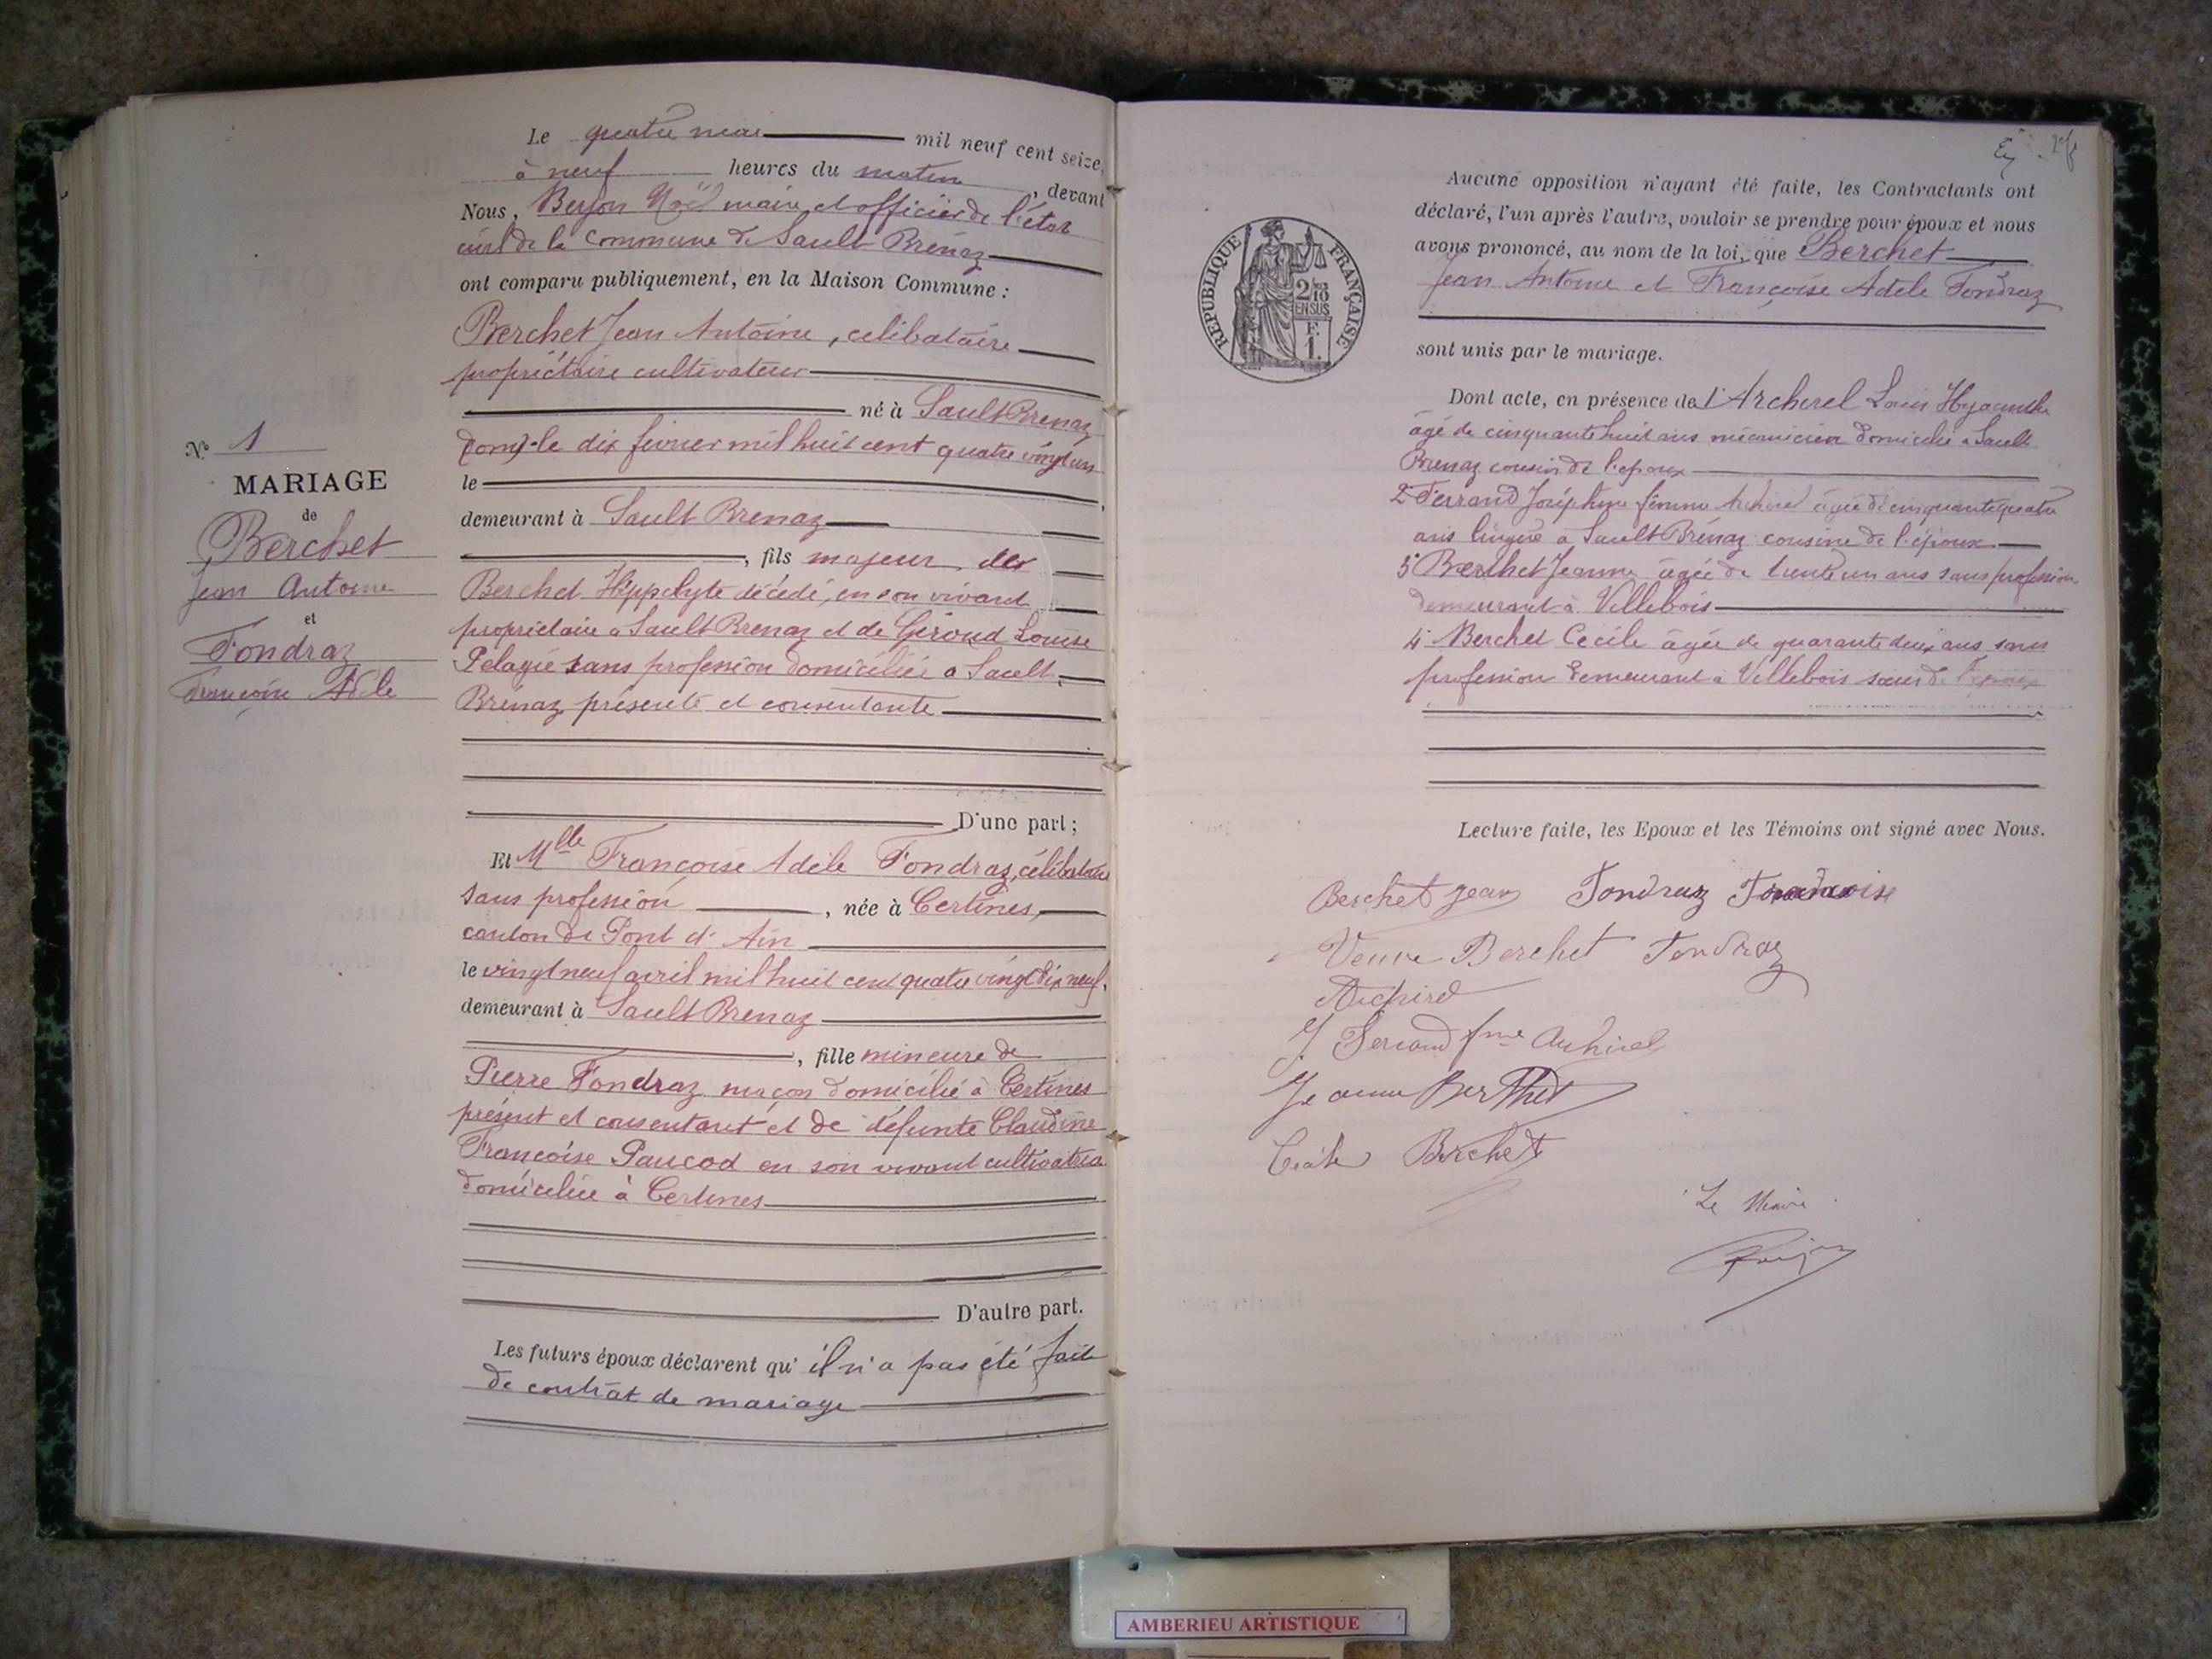 Le quatre mai mil neuf cent seize,
à neuf heures du matin, devant
Nous, Beyon Noël maire et officier de l'état
civil de la commune de Sault Brénaz
ont comparu publiquement, en la Maison Commune :
Berchet Jean Antoine, célibataire
propriétaire cultivateur
né à Sault Brenaz
(Ain) le dix fevrier mil huit cent quatre vingt un
le
demeurant à Sault Brenaz
, fils majeur de
Berchet Hippolyte décédé, en son vivant
propriétaire a Sault Brenaz et de Giroud Louise
Pelagie sans profession domiciliée a Sault
Brénaz présente et consentante
D'une part ;
Et Mlle Françoise Adèle Fondraz, célibataire
sans profession, née à Certines,
canton de Pont d'Ain
le vingt neuf avril mil huit cent quatre vingt dix neuf,
demeurant à Sault Brenaz
, fille mineure de
Pierre Fondraz maçon domicilié à Certines
présent et consentant et de défunte Claudine
Françoise Paucod en son vivant cultivatrice
domiciliée à Certines
D'autre part.
Les futurs époux déclarent qu' il n'a pas été fait
de contrat de mariage
No 1
MARIAGE
de
Berchet
Jean Antoine
et
Fondraz
Françoise Adèle
Aucune opposition n'ayant été faite, les Contractants ont
déclaré, l'un après l'autre, vouloir se prendre pour époux et nous
avons prononcé, au nom de la loi, que Berchet
Jean Antoine et Françoise Adèle Fondraz
sont unis par le mariage.
Dont acte, en présence de 1° Archirel Louis Hyacinthe
âgé de cinquante huit ans mécanicien domicilié a Sault
Brenaz cousin de l'époux
2° Ferrand Joséphine femme Archirel âgée de cinquante quatre
ans lingère à Sault Brénaz cousine de l'époux
3° Berchet Jeanne âgée de trente un ans sans profession
demeurant à Villebois
4° Berchet Cécile âgée de quarante deux ans sans
profession demeurant à Villebois soeur de l'époux
Lecture faite, les Epoux et les Témoins ont signé avec Nous.
RÉPUBLIQUE FRANÇAISE
2/10
EN SUS
F.
1.
Berchet Jean Fondraz Françoise
Veuve Berchet Fondraz
Archirel
J. Ferrand fme Archirel
Jeanne Berthet
Cécile Berchet
Le Maire
AMBERIEU ARTISTIQUE